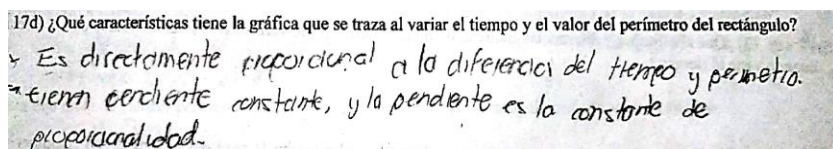 17d) ¿Qué características tiene la gráfica que se traza al variar el tiempo y el valor del perímetro del rectángulo?
Es directamente proporcional a la diferencia del tiempo y perímetro.
tienen pendiente constante, y la pendiente es la constante de
proporcionalidad.